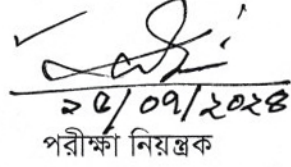 ২৫/০৭/২০২৪
পরীক্ষা নিয়ন্ত্রক